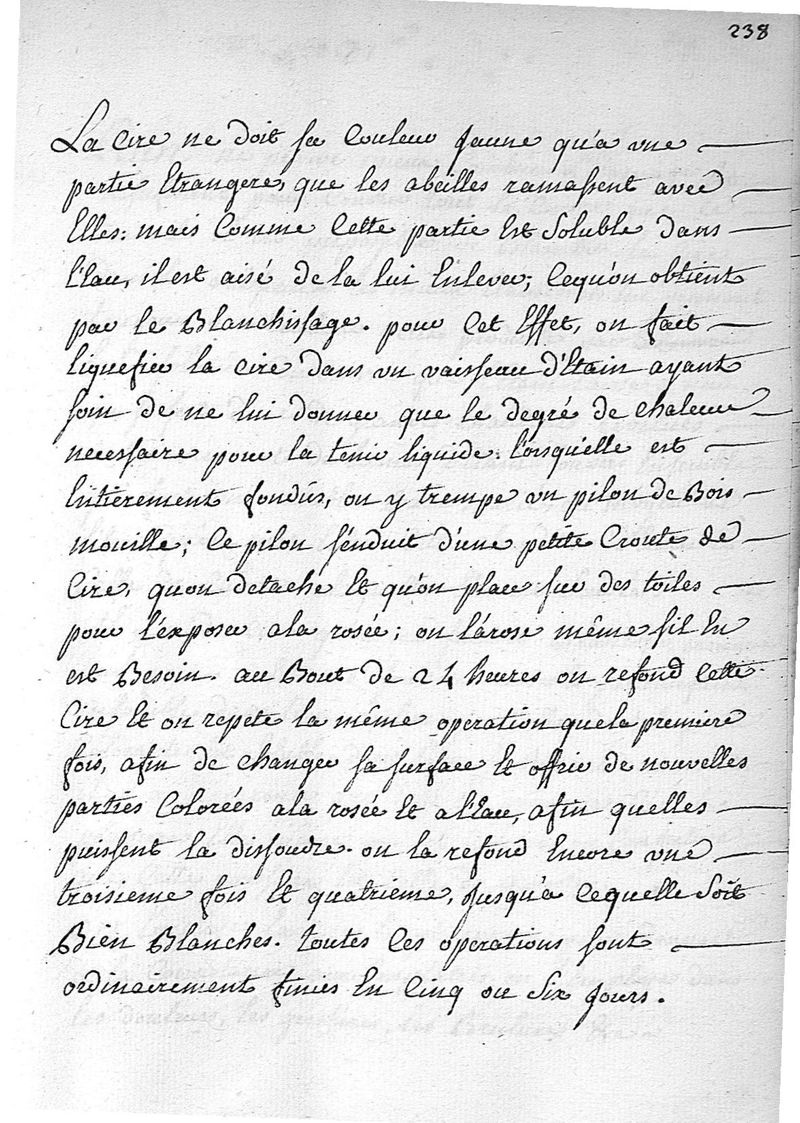 238
La Cire ne doit sa Couleur Jaune qu'a une
partie Etrangere, que les abeilles ramassent avec
Elles: mais Comme Cette partie Est Soluble dans
l'Eau, il est aisé de la lui Enlever; Cequ'on obtient
par le Blanchissage. pour Cet Effet, on fait
liquefier la Cire dans un vaisseau d'Etain ayant
soin de ne lui donner que le degré de chaleur
necessaire pour la tenir liquide. lorsqu'elle est
Entierement fondüe, on y trempe un pilon de Bois
mouille; Ce pilon s'enduit d'une petite Croute de
Cire, quon detache Et qu'on place sur des toiles
pour l'exposer a la rosée; on l'arose même s'il En
est Besoin. au Bout de 24 heures on refond Cette
Cire Et on repete la même operation que la premiere
fois, afin de changer sa surface Et offrir de nouvelles
parties Colorées a la rosée Et a l'Eau, afin quelles
puissent la dissoudre. on la refond Encore une
troisieme fois Et quatrieme, Jusqu'a Cequelle Soit
Bien Blanches. toutes Ces operations sont
ordinairement finies En Cinq ou Six Jours.